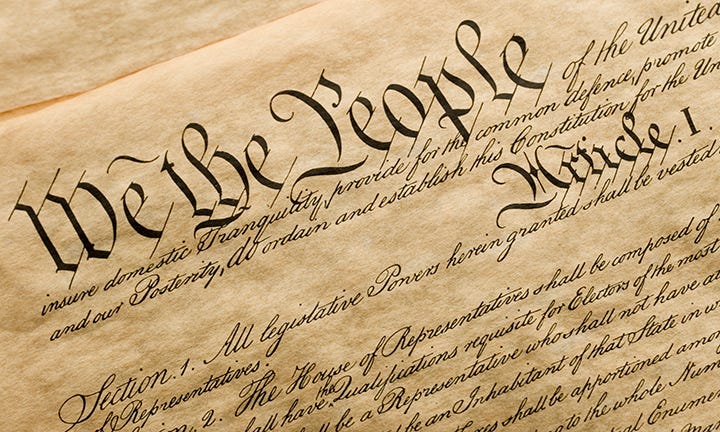 We the People of the United
insure domestic Tranquility, provide for the common defence, promote
and our Posterity, do ordain and establish this Constitution for the Un
Article. I.
Section. 1. All legislative Powers herein granted shall be vested
of Representatives.
n. 2. The House of Representatives shall be composed of
all have the Qualifications requisite for Electors of the most
ll be a Representative who shall not have a
be an Inhabitant of that State in w
shall be apportioned amo
to the whole Num
Enumer